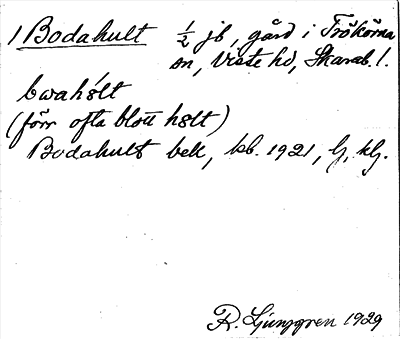 1 Bodahult ½ jb, gård i Trökörna
sn, Viste hd, Skarab. l.
bwahólt
(förr ofta blott hólt)
Bodahult bek, kb. 1921, G, kG.
R. Ljunggren 1929